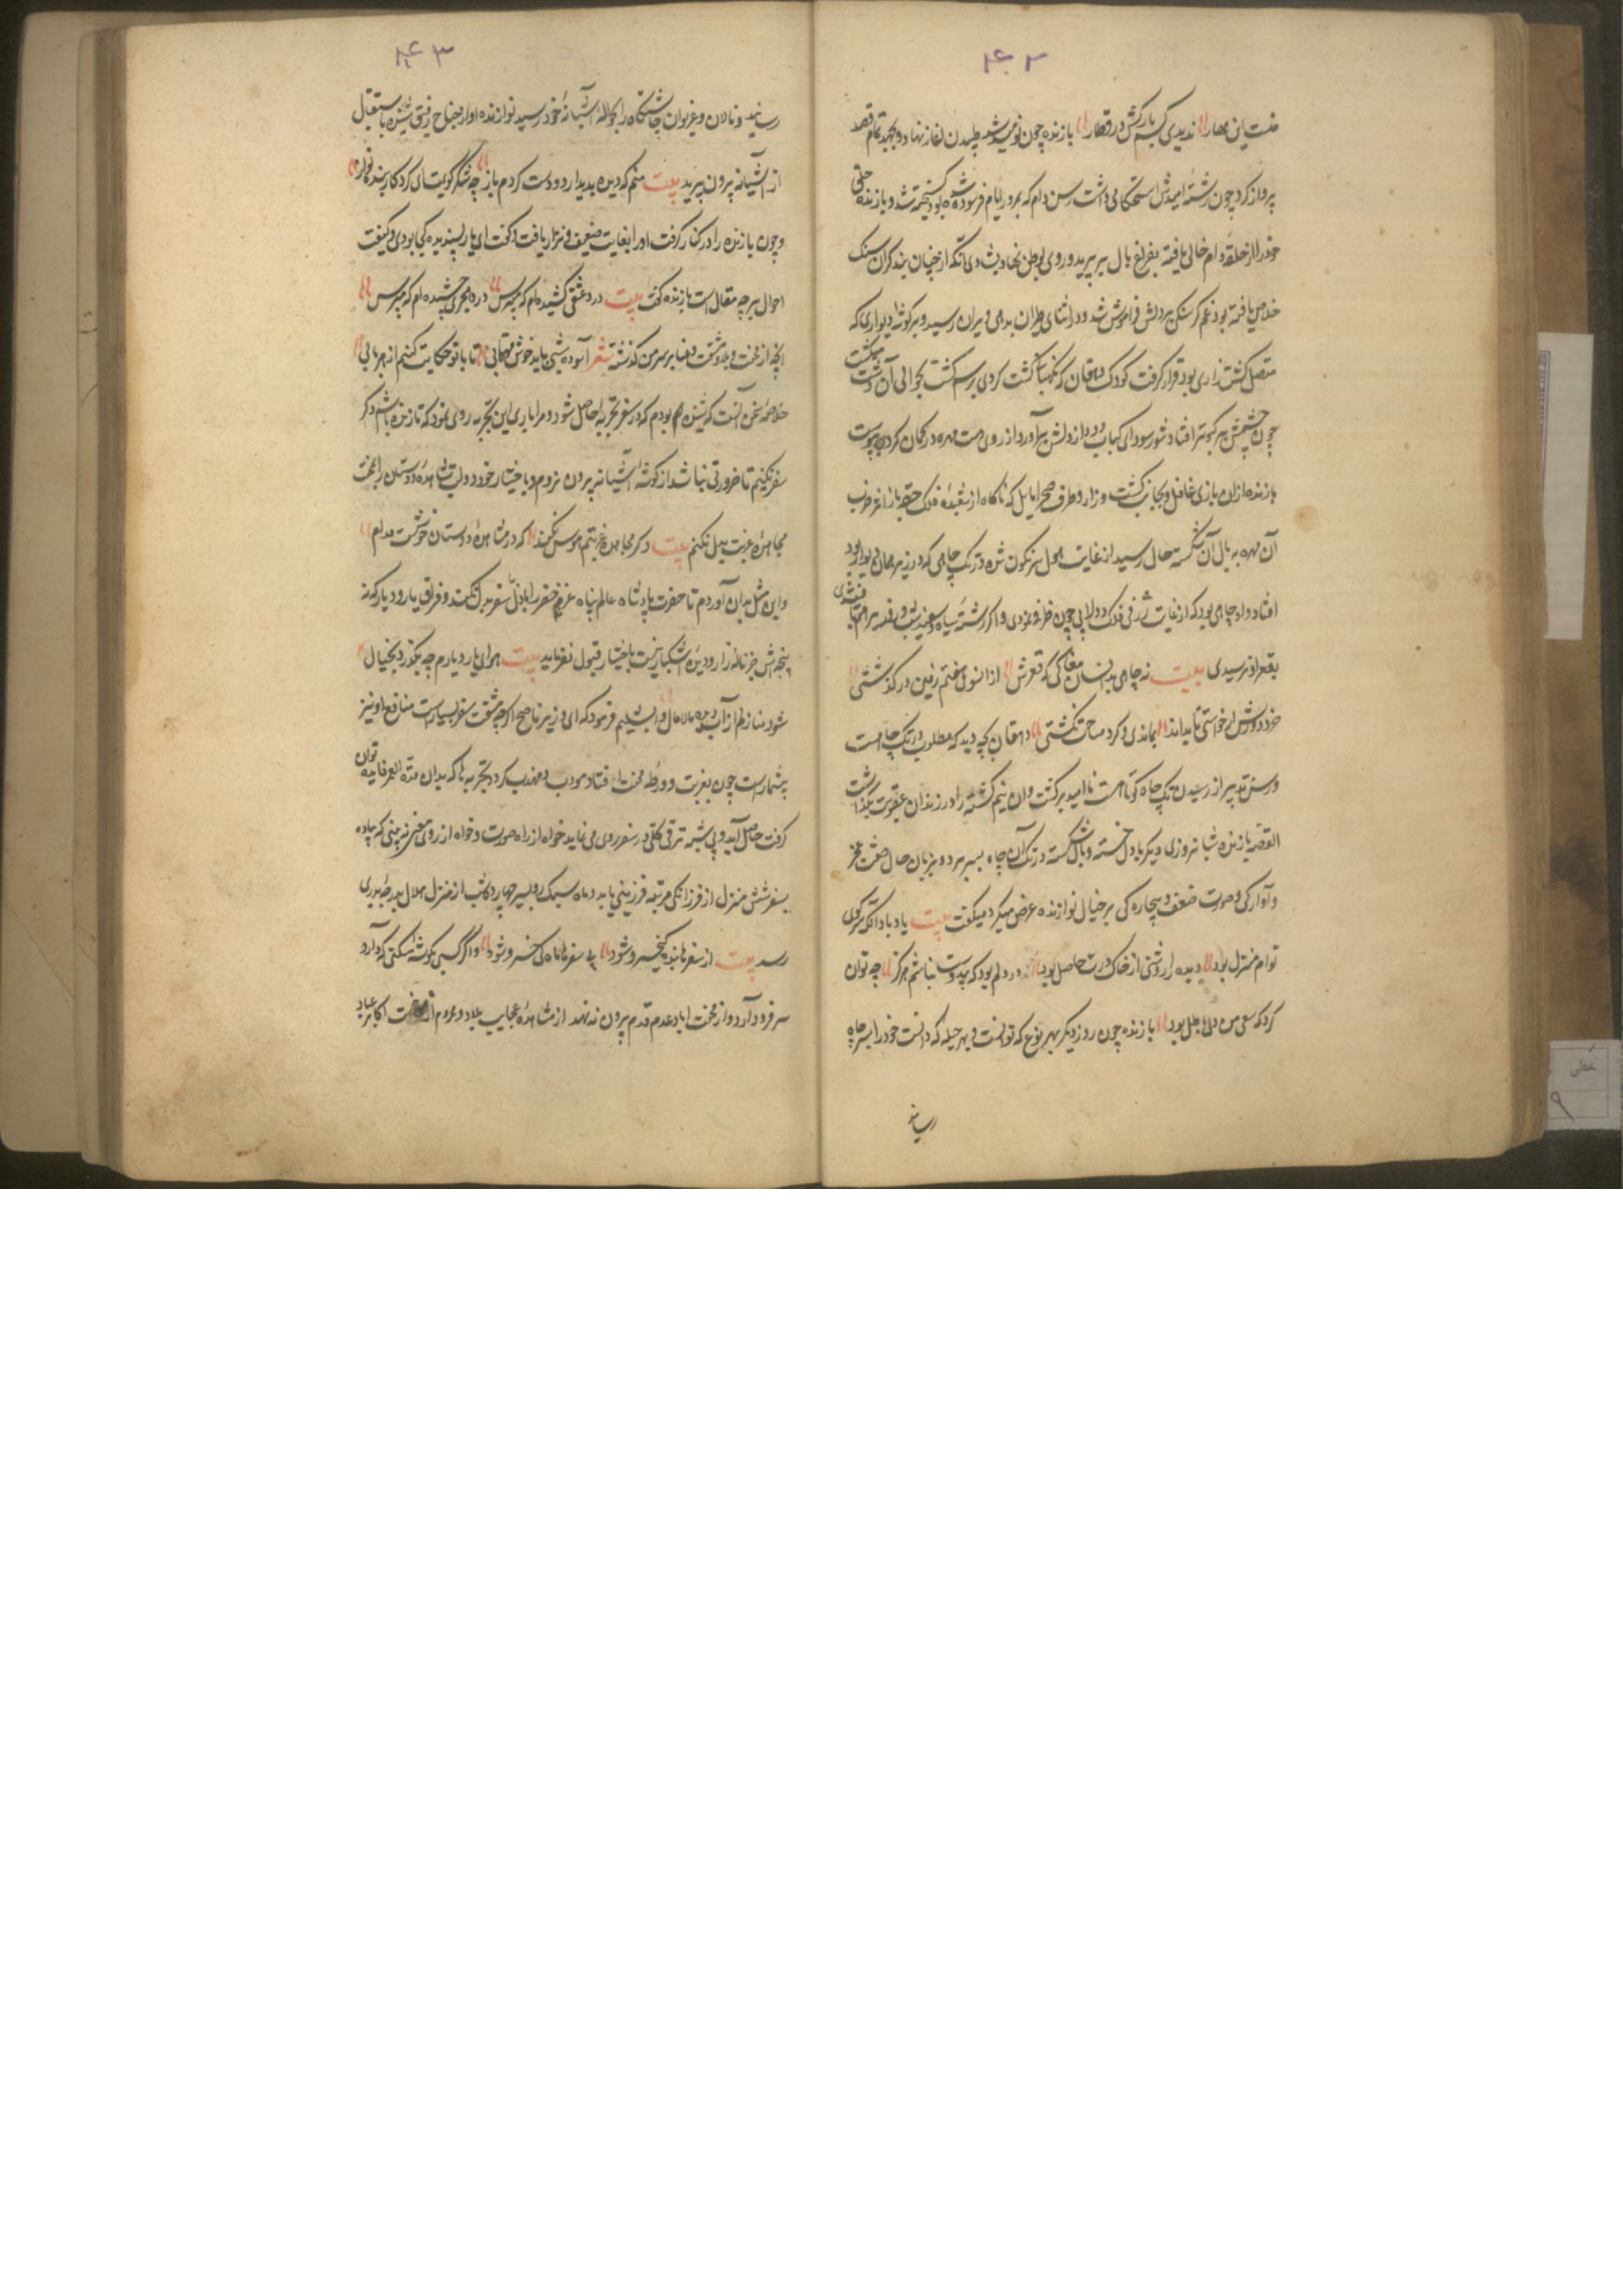 ۴۲
منست این مهار ندیدی کسم بارکش در قطار بازنده چون نومید شد طپیدن آغاز نهاد و بجهد تمام قصد
پرواز کرد چون رشتهٔ امیدش استحکامی داشت رسن دام که بمرور ایام فرسوده شده بود گسیخته شد و بازنده حلق
خود را از حلقه دام خالی یافته بفراغ بال بپرید و روی بوطن نهاد بشادی آنکه از چنان بند گران سبک
خلاصی یافته بود غم گرسنگی بر دلش فراموش شد و در اثنای طیران بدهی ویران رسید و بر گوشه دیواری که
متصل کشتزاری بود قرار گرفت کودک دهقان که نگهبانی کشت کردی برسم گشت بحوالی آن دشت میگشت
چون چشمش بر کبوتر افتاد شور سودای کباب دود از دلش برآورد از روی دست مهره در کمان کرده پیوست
بازنده ازان بازی غافل و بجانب کشت و زار و طرف صحرا مایل که ناگاه از شعبده فلک حقه باز اثر ضرب
آن مهره به بال آن شکسته حال رسید از غایت هول سرنگون شده در تک چاهی که در زیر همان دیوار بود
افتاد و او چاهی بود که از غایت ژرفی فلک دولابی چون ظرفه نمودی و اگر رشته سیاه و سفید شب و روز بر هم تافتندی
بقعر او نرسیدی بیت نه چاهی بدانسان مغاکی که قعرش از انسوی هفتم زمین درگذشتی
خرد دورش ار خواستی تا بداند بماندی و گرد مساحت نگشتی دهقان بچه دید که مطلوب در تک چاهست
و رسن تدبیر از رسیدن بتک چاه کوتاهست ناامید برگشت و آن نیم کشته را در زندان عقوبت بگذاشت
القصه بازنده شبانروزی دیگر با دل خسته و بال شکسته در تک آن چاه بسر برد و بزبان حال صفت عجز
و آوارگی و صورت ضعف و بیچارگی بر خیال نوازنده عرض میکرد میگفت بیت یاد باد آنکه سر کوی
توام منزل بود دیده را روشنی از خاک درت حاصل بود در دلم بود که بی دوست نباشم هرگز چه توان
کرد که سعی من و دل باطل بود بازنده چون روز دیگر بهر نوع که توانست و بهر حیله که دانست خود را بسر چاه
رسانید
۴۳
رسانید و نالان و غریوان چاشتگاه را بحوالهٔ آشیانهٔ خود رسید نوازنده آواز جناح رفیق شنیده باستقبال
از آشیانه بیرون پرید بیت منم که دیده بدیدار دوست کردم باز چه شکر گویمت ای کردکار بنده نواز
و چون بازنده را در کنار گرفت او را بغایت ضعیف و نزار یافت گفت ای یار پسندیده کجا بودی و کیفیت
احوال بر چه مقال است بازنده گفت بیت درد عشقی کشیده ام که مپرس زهر هجری چشیده ام که مپرس
آنچه از محنت و بلا و مشقت و عنا بر سر من گذشته شعر آسوده شبی باید خوش مهتابی تا با تو حکایت کنم از هر بابی
خلاصه سخن آنست که شنیده ام بودم که در سفر تجربه حاصل شود و مرا باری این تجربه روی نمود که تا زنده باشم دگر
سفر نکنم تا ضرورتی نباشد از گوشه آشیانه بیرون نروم و باختیار خود دولت مشاهده دوستان را بمحنت
مجاهده غربت بدل نکنم بیت دگر مجاهده غربتم هوس نکند که در مشاهده دوستان خوشست مدام
و این مثل بدان آوردم تا حضرت پادشاه عالم پناه عز حضر را با ذل سفر بدل نکند و فراق یار و دیار که نه
نتیجه اش جز ناله زار و دیده اشکبار نیست باختیار قبول نفرماید بیت هوای یار و دیارم چه بگذرد بخیال
شود منازلم از آب دیده مالامال دابشلیم فرمود که ای وزیر ناصح اگر چه مشقت سفر بسیار است منافع او نیز
بیشمارست چون بغربت و ورطه محنت افتاد مودب و مهذب کرد و تجربه ها که بدان مدة العمر فایده توان
گرفت حاصل آید و بی شبه ترقی کلی در سفر روی می نماید خواه از راه صورت و خواه از روی معنی نه بینی که پیاده
بسفر شش منزل از فرزانگی مرتبه فرزینی یابد و ماه سبک رو بسیر چهارده شب از منزل هلال بدرجه بدری
رسد بیت از سفرها بنده کیخسرو شود بی سفرها ماه کی خسرو شود و اگر کسی بگوشه مسکنی که دارد
سر فرود آرد و از محنت اباد عدم قدم بیرون نه نهد از مشاهده عجایب بلاد و محروم از خدمت اکابر عباد
خطی
۹